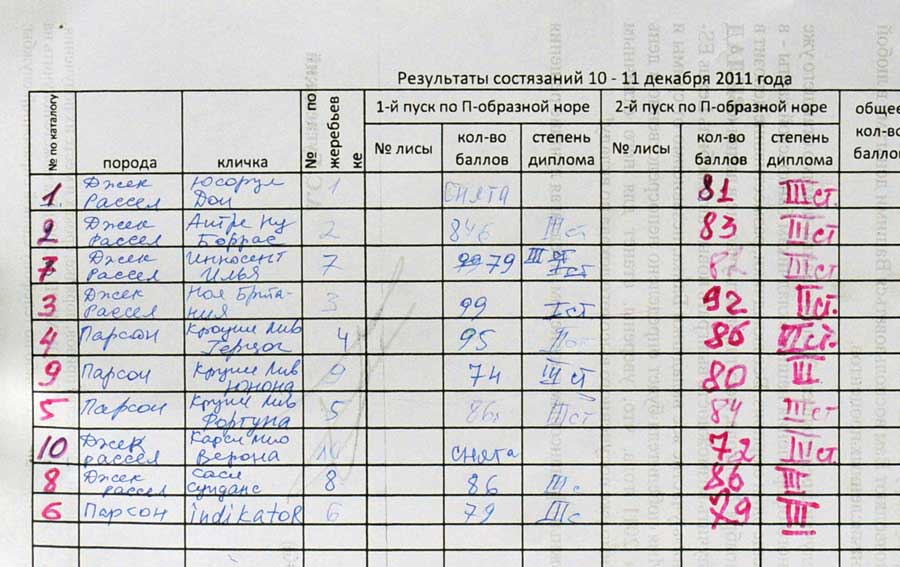 Результаты состязаний 10 - 11 декабря 2011 года
№ по каталогу порода кличка № по жеребьевке 1-й пуск по П-образной норе 2-й пуск по П-образной норе общее кол-во баллов
№ лисы кол-во баллов степень диплома № лисы кол-во баллов степень диплома
1. Джек Рассел Юсорул Дои 1 снята 81 III ст.
2 Джек Рассел Боррас 2 84б III ст 83 III ст
7 Джек Рассел Инносент Илья 7 79 III ст 82 III ст
3 Джек Рассел Ноя Британия 3 99 I ст 92 II ст.
4 Парсон Герцог 4 95 II 86 III ст.
9 Парсон Круши Лив Юнона 9 74 III ст 80 III
5 Парсон Круши Лив Фортуна 5 86 III ст 84 III ст
10 Джек рассел Верона 10 снята 72 III ст.
8 Джек рассел Саси Сунданс 8 86 III с 86 III
6 Парсон indikator 6 79 III с 79 III